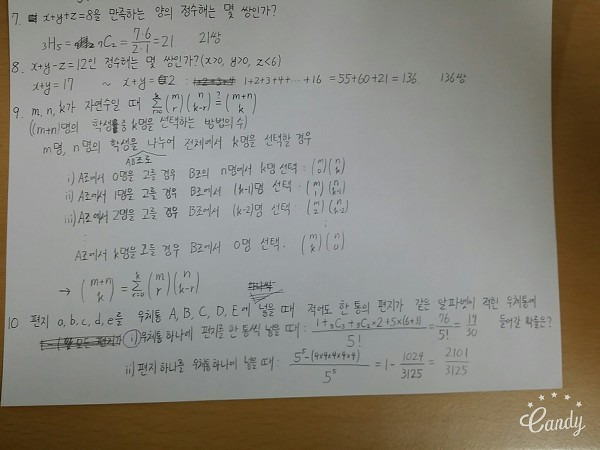 7. x+y+z=8을 만족하는 양의 정수해는 몇 쌍인가?
₃H₅ = ₇C₂ = 7·6/2·1 = 21 21쌍
8. x+y-z=12인 정수해는 몇 쌍인가? (x>0, y>0, z<6)
x+y=17 ~ x+y=2 : 1+2+3+4+⋯+16 = 55+60+21=136 136쌍
9. m, n, k가 자연수일 때 \sum_{r=0}^{k} \binom{m}{r}\binom{n}{k-r} ?= \binom{m+n}{k}
((m+n)명의 학생 중 k명을 선택하는 방법의 수)
m명, n명의 학생을 나누어 전체에서 k명을 선택할 경우
AB조로
i) A조에서 0명을 고를 경우 B조의 n명에서 k명 선택 : \binom{m}{0}\binom{n}{k}
ii) A조에서 1명을 고를 경우 B조에서 (k-1)명 선택 : \binom{m}{1}\binom{n}{k-1}
iii) A조에서 2명을 고를 경우 B조에서 (k-2)명 선택 : \binom{m}{2}\binom{n}{k-2}
⋮
A조에서 k명을 고를 경우 B조에서 0명 선택. \binom{m}{k}\binom{n}{0}
→ \binom{m+n}{k} = \sum_{r=0}^{k} \binom{m}{r}\binom{n}{k-r}
10 편지 a, b, c, d, e를 우체통 A, B, C, D, E에 넣을 때 적어도 한 통의 편지가 같은 알파벳이 적힌 우체통에
들어갈 확률은?
i) 우체통 하나에 편지를 한 통씩 넣을 때 : = 76/5! = 19/30
ii) 편지 하나를 우체통 하나에 넣을 때 : 5⁵-(4×4×4×4×4)/5⁵ = 1 - 1024/3125 = 2101/3125
Candy